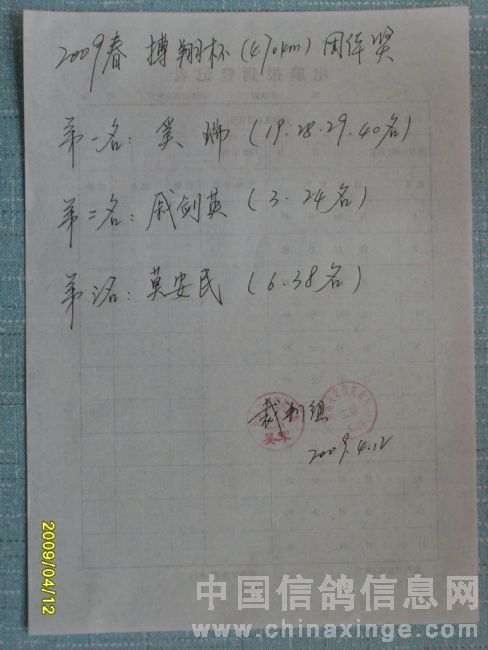 2009春 搏翔杯(470km)团体奖
第一名: 奚瑞 (19.28.29.40名)
第二名: 戚剑英 (3.24名)
第三名: 莫安民 (6.38名)
裁判组
吴军
2009.4.12
2009/04/12
中国信鸽信息网
www.chinaxinge.com